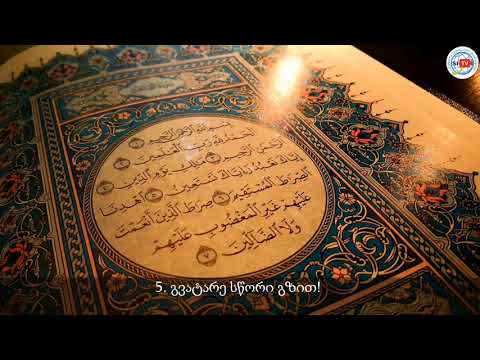 بِسْمِ ٱللَّهِ ٱلرَّحْمَٰنِ ٱلرَّحِيمِ ١
ٱلْحَمْدُ لِلَّهِ رَبِّ ٱلْعَٰلَمِينَ ٢
ٱلرَّحْمَٰنِ ٱلرَّحِيمِ ٣ مَٰلِكِ يَوْمِ ٱلدِّينِ ٤
إِيَّاكَ نَعْبُدُ وَإِيَّاكَ نَسْتَعِينُ ٥ ٱهْدِنَا
ٱلصِّرَٰطَ ٱلْمُسْتَقِيمَ ٦ صِرَٰطَ ٱلَّذِينَ أَنْعَمْتَ
عَلَيْهِمْ غَيْرِ ٱلْمَغْضُوبِ عَلَيْهِمْ
وَلَا ٱلضَّآلِّينَ ٧
TV
5. გვატარე სწორი გზით!